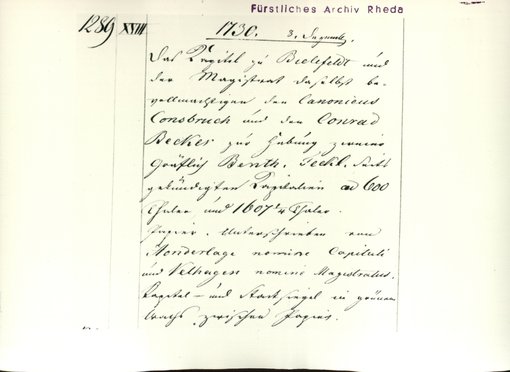 Fürstliches Archiv Rheda
1289 XVIII 1730. 3. Dezember.
Das Kapitel zu Bielefeldt und
der Magistrat daselbst be-
vollmächtigen den Canonicus
Consbruch und den Conrad
Becker zur Hebung zweier
Gräflich Benth. Teckl. Seits
gekündigten Kapitalien ad 600
Thaler und 1607 1/4 Thaler.
Papier. Unterschrieben von
Nonderlage nomine Capituli
und Velhagen nomine Magistratus.
Kapitel- und Stadtsiegel in grünem
Wachs zwischen Papier.